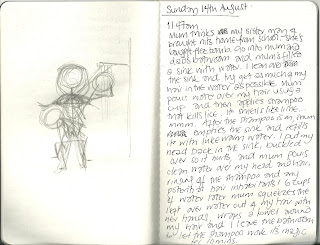 Sunday 14th August.
11.47am
Mum thinks my sister may have
brought nits home from school. She's
bought the comb. Go into mum and
dad's bathroom and mum's filled
a sink with water. I lean over
the sink and try get as much of my
hair in the water as possible. Mum
pours water over my hair using a
cup and then applies shampoo
that kills lice. It smells like lime...
mmm. After the shampoo is in, mum
empties the sink and refills
it with luke warm water. I put my
head back in the sink, buckled
over so it hurts, and mum pours
clean water over my head and hair,
rinsing of the shampoo and any
potential hair inhabitants! 6 cups
of water later mum squeezes the
left over water out of my hair with
her hands, wraps a towel around
my hair and I leave the bathroom
to let the shampoo work its magic
for 10 mins.